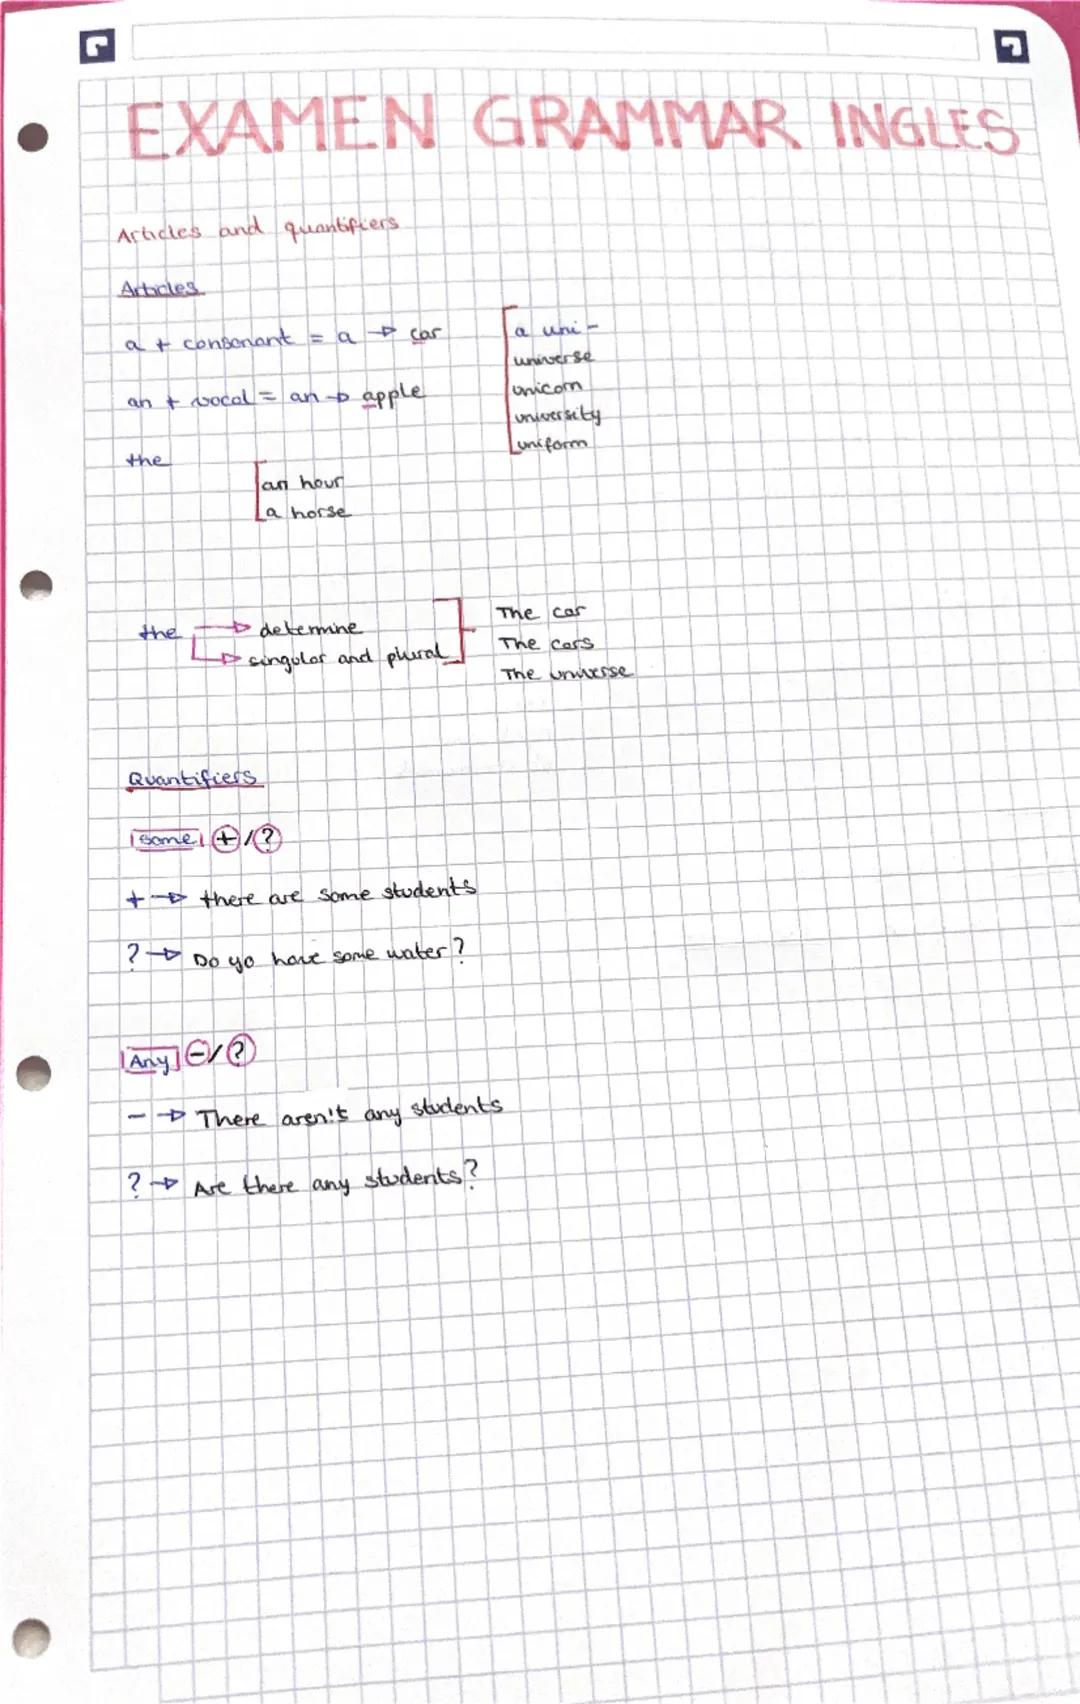 EXAMEN GRAMMAR INGLES
Articles and quantifiers
Articles
a + consonant = a → car
an + vocal = an → apple
the
a uni-
universe
unicorn
university
uniform
an hour
a horse
the → determine
→ singular and plural
The car
The cars
The universe
Quantifiers
some + / ?
+ → there are some students
? → Do yo have some water?
Any - / ?
- → There aren't any students
? → Are there any students?